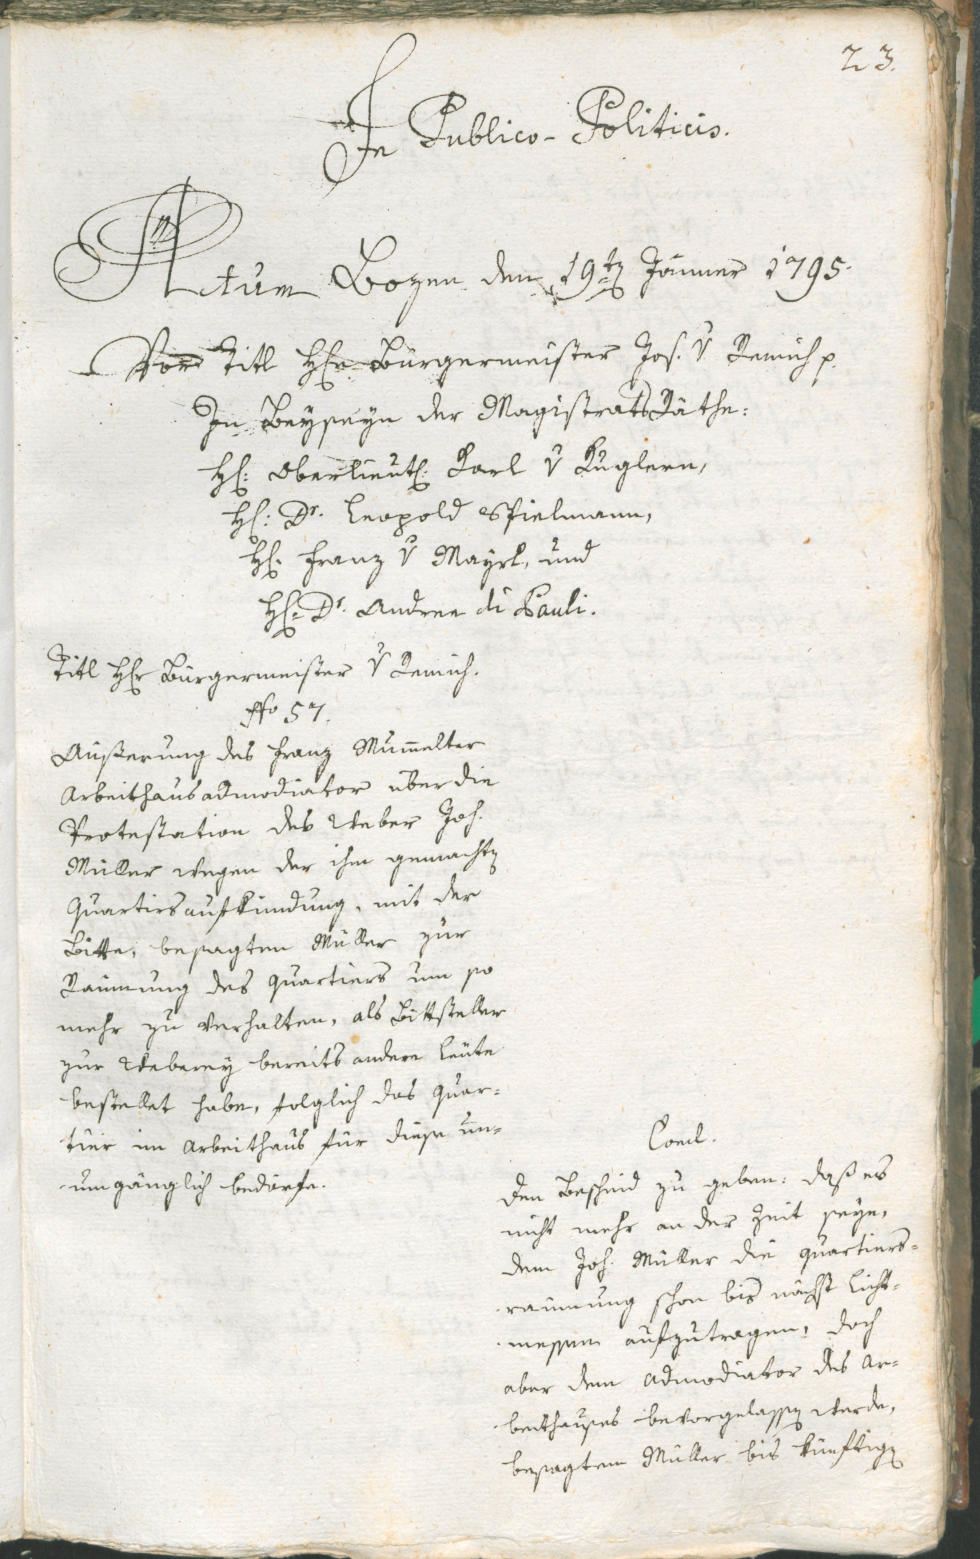 23.
In Publico-Politicis.
Actum Bozen den 19ten Jänner 1795.
Vor Titl Hr Bürgermeister Jos. v Remich p.
In Beyseyn der Magistrats Räthe:
H: Oberlieut: Karl v Kuglern,
H: Dr. Leopold Spielmann,
H: Franz v Mayrl, und
H: Dr. Andree di Pauli.
Titl Hr Bürgermeister v Remich.
57.
Äußerung des Franz Mumelter
Arbeithausadmodiator über die
Protestation des Weber Joh.
Müller wegen der ihm gemachten
Quartirsaufkündung, mit der
Bitte, besagten Müller zur
Räumung des Quartiers um so
mehr zu verhalten, als Bittsteller
zur Weberey bereits andere Leute
bestellet habe, folglich das Quar=
tier im Arbeithaus für diese un=
umgänglich bedürfe.
Concl.
Den Bescheid zu geben: daß es
nicht mehr an der Zeit seye,
dem Joh. Müller die Quartiers=
raumung schon bis nächst Licht=
messen aufzutragen, doch
aber dem Admodiator des Ar=
beithauses bevorgelassen werde,
besagtem Müller bis künftigen